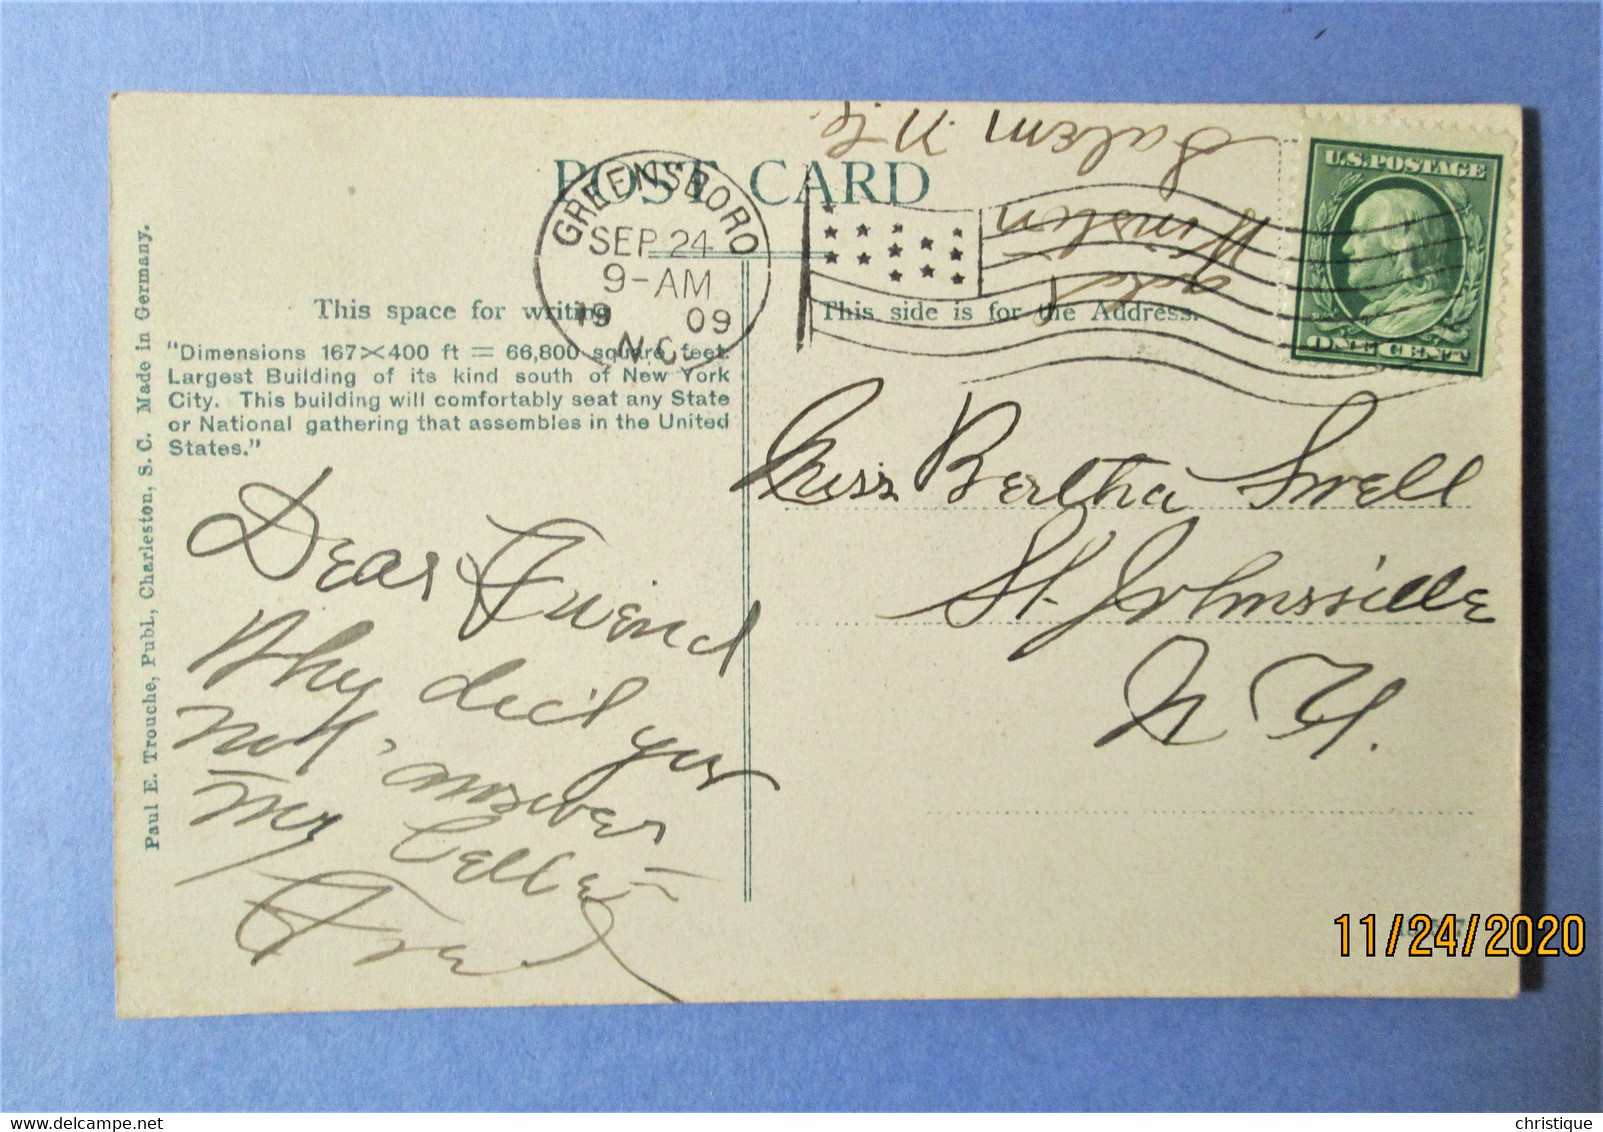 POST CARD
GREENSBORO
SEP 24
9-AM
19 09
N.C.
U.S.POSTAGE
ONE CENT
Winston
Salem N.C.
This space for writing
This side is for the Address.
"Dimensions 167×400 ft = 66,800 square feet.
Largest Building of its kind south of New York
City. This building will comfortably seat any State
or National gathering that assembles in the United
States."
Paul E. Trouche, Publ., Charleston, S. C. Made in Germany.
Dear Friend
Why did you
not answer
my letter
Fred
Miss Bertha Swell
St. Johnsville
N. Y.
11/24/2020
christique